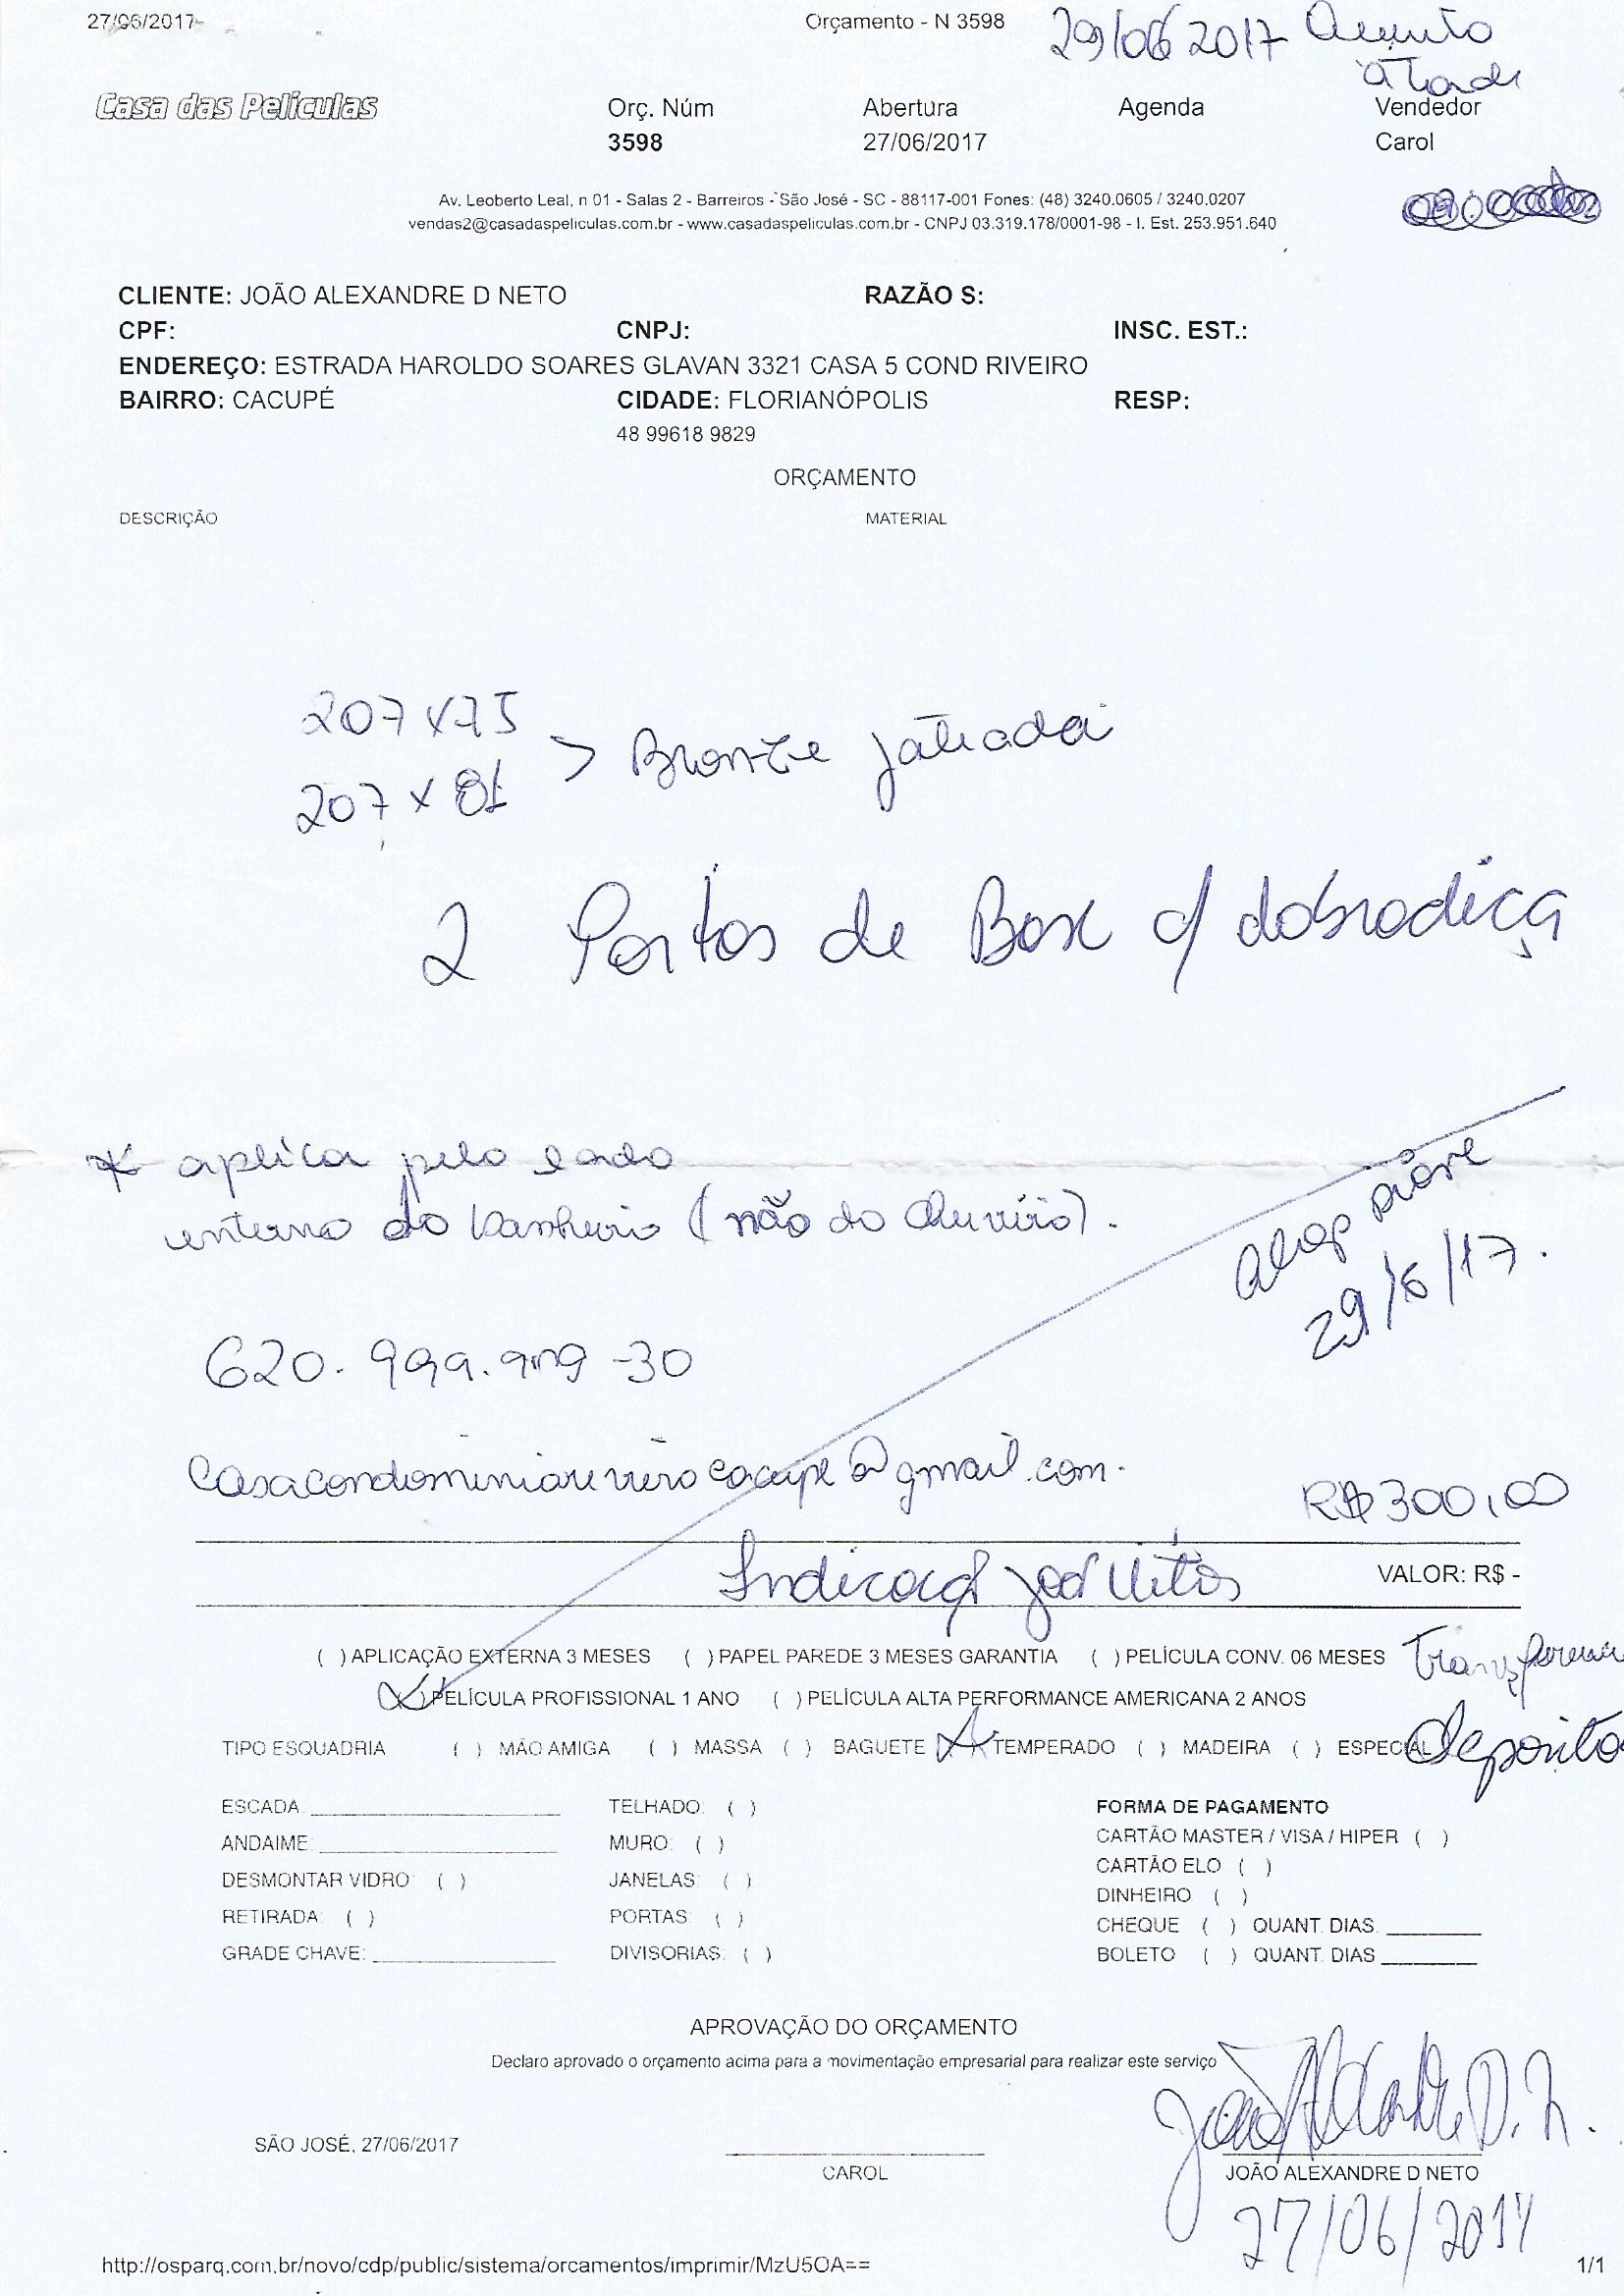 27/06/2017
Orçamento - N 3598
29/06/2017 Quinto
à tarde
Casa das Películas
Orç. Núm Abertura Agenda Vendedor
3598 27/06/2017 Carol
Av. Leoberto Leal, n 01 - Salas 2 - Barreiros - São José - SC - 88117-001 Fones: (48) 3240.0605 / 3240.0207
vendas2@casadaspeliculas.com.br - www.casadaspeliculas.com.br - CNPJ 03.319.178/0001-98 - I. Est. 253.951.640
CLIENTE: JOÃO ALEXANDRE D NETO RAZÃO S:
CPF: CNPJ: INSC. EST.:
ENDEREÇO: ESTRADA HAROLDO SOARES GLAVAN 3321 CASA 5 COND RIVEIRO
BAIRRO: CACUPÉ CIDADE: FLORIANÓPOLIS RESP:
48 99618 9829
ORÇAMENTO
DESCRIÇÃO MATERIAL
207 x 75
207 x 81 > Bronze jateada
2 Portas de Box c/ dobradiça
* aplica pelo lado
interno do banheiro (não do chuveiro).
29/6/17.
620.999.909-30
R$ 300,00
Indicação João Vitor
VALOR: R$ -
( ) APLICAÇÃO EXTERNA 3 MESES ( ) PAPEL PAREDE 3 MESES GARANTIA ( ) PELÍCULA CONV. 06 MESES
(X) PELÍCULA PROFISSIONAL 1 ANO ( ) PELÍCULA ALTA PERFORMANCE AMERICANA 2 ANOS
deposito
TIPO ESQUADRIA ( ) MÃO AMIGA ( ) MASSA ( ) BAGUETE (X) TEMPERADO ( ) MADEIRA ( ) ESPECIAL
ESCADA: TELHADO: ( ) FORMA DE PAGAMENTO
ANDAIME: MURO: ( ) CARTÃO MASTER / VISA / HIPER ( )
DESMONTAR VIDRO: ( ) JANELAS: ( ) CARTÃO ELO ( )
RETIRADA: ( ) PORTAS: ( ) DINHEIRO ( )
GRADE CHAVE: DIVISORIAS: ( ) CHEQUE ( ) QUANT. DIAS:
BOLETO ( ) QUANT. DIAS
APROVAÇÃO DO ORÇAMENTO
Declaro aprovado o orçamento acima para a movimentação empresarial para realizar este serviço
João Alexandre D. N.
SÃO JOSÉ, 27/06/2017
CAROL JOÃO ALEXANDRE D NETO
27/06/2017
http://osparq.com.br/novo/cdp/public/sistema/orcamentos/imprimir/MzU5OA== 1/1